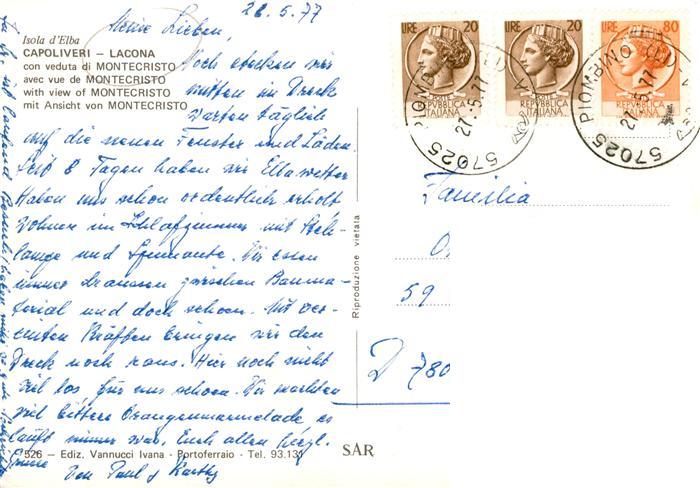 26.5.77
Meine Lieben,
Isola d'Elba
CAPOLIVERI – LACONA
con veduta di MONTECRISTO
avec vue de MONTECRISTO
with view of MONTECRISTO
mit Ansicht von MONTECRISTO
Noch stecken wir
mitten im Dreck
warten täglich
auf die neuen Fenster und Läden.
Seit 8 Tagen haben wir Elbawetter
Haben uns schon ordentlich erholt,
wohnen im Schlafzimmer mit Steh-
lampe und Wir essen
immer draussen zwischen Bauma-
terial und doch schoen. Mit ver-
einten Kräften bringen wir den
Dreck noch raus. Hier noch nicht
viel los für uns schoen. Wir machten
viel bittere Orangenmarmelade es
läuft immer was. Euch allen herzl.
Grüsse
von Paul &
526 – Ediz. Vannucci Ivana - Portoferraio - Tel. 93.131
SAR
Riproduzione vietata
LIRE 20
LIRE 20
LIRE 80
REPVBBLICA
ITALIANA
REPVBBLICA
ITALIANA
REPVBBLICA
ITALIANA
57025 PIOMBINO (LI)
27.5.77
57025 PIOMBINO (LI)
27.5.77
Familia
O.
59
D 780